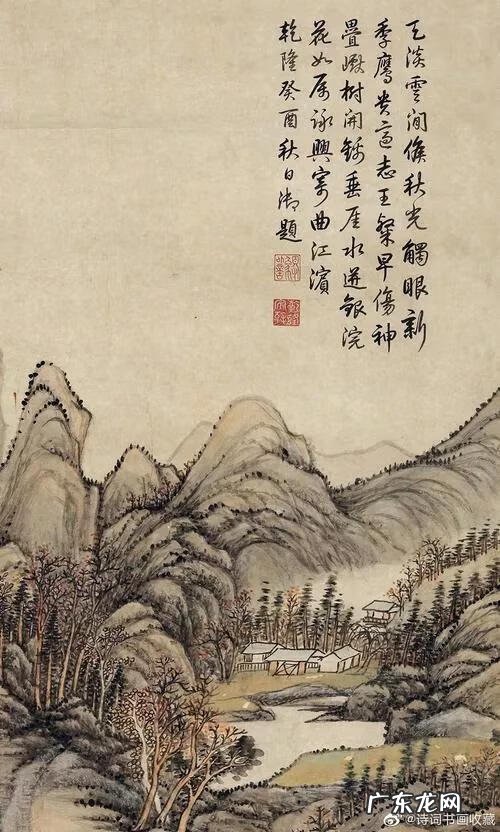 天淡雲閒候秋光觸眼新
季鷹貴適志王粲早傷神
疊巘樹開錦垂崖水迸銀浣
花如屬詠興寄曲江濱
乾隆癸酉秋日御題
广东龙网
@诗词书画收藏